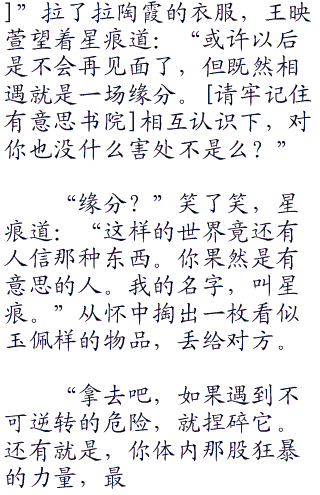 ]”拉了拉陶霞的衣服，王映
萱望着星痕道：“或许以后
是不会再见面了，但既然相
遇就是一场缘分。[请牢记住
有意思书院]相互认识下，对
你也没什么害处不是么？”
“缘分？”笑了笑，星
痕道：“这样的世界竟还有
人信那种东西。你果然是有
意思的人。我的名字，叫星
痕。”从怀中掏出一枚看似
玉佩样的物品，丢给对方。
“拿去吧，如果遇到不
可逆转的危险，就捏碎它。
还有就是，你体内那股狂暴
的力量，最